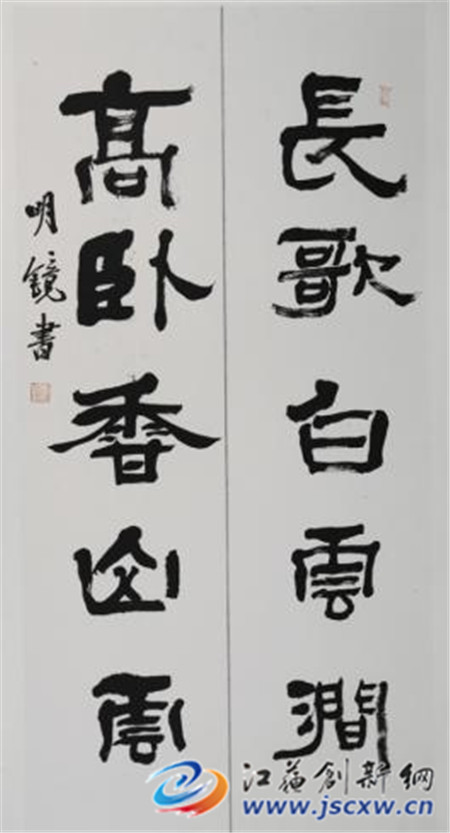 長歌白雲澗
高卧香山雲
明鏡書
江蘇創新網
www.jscxw.cn